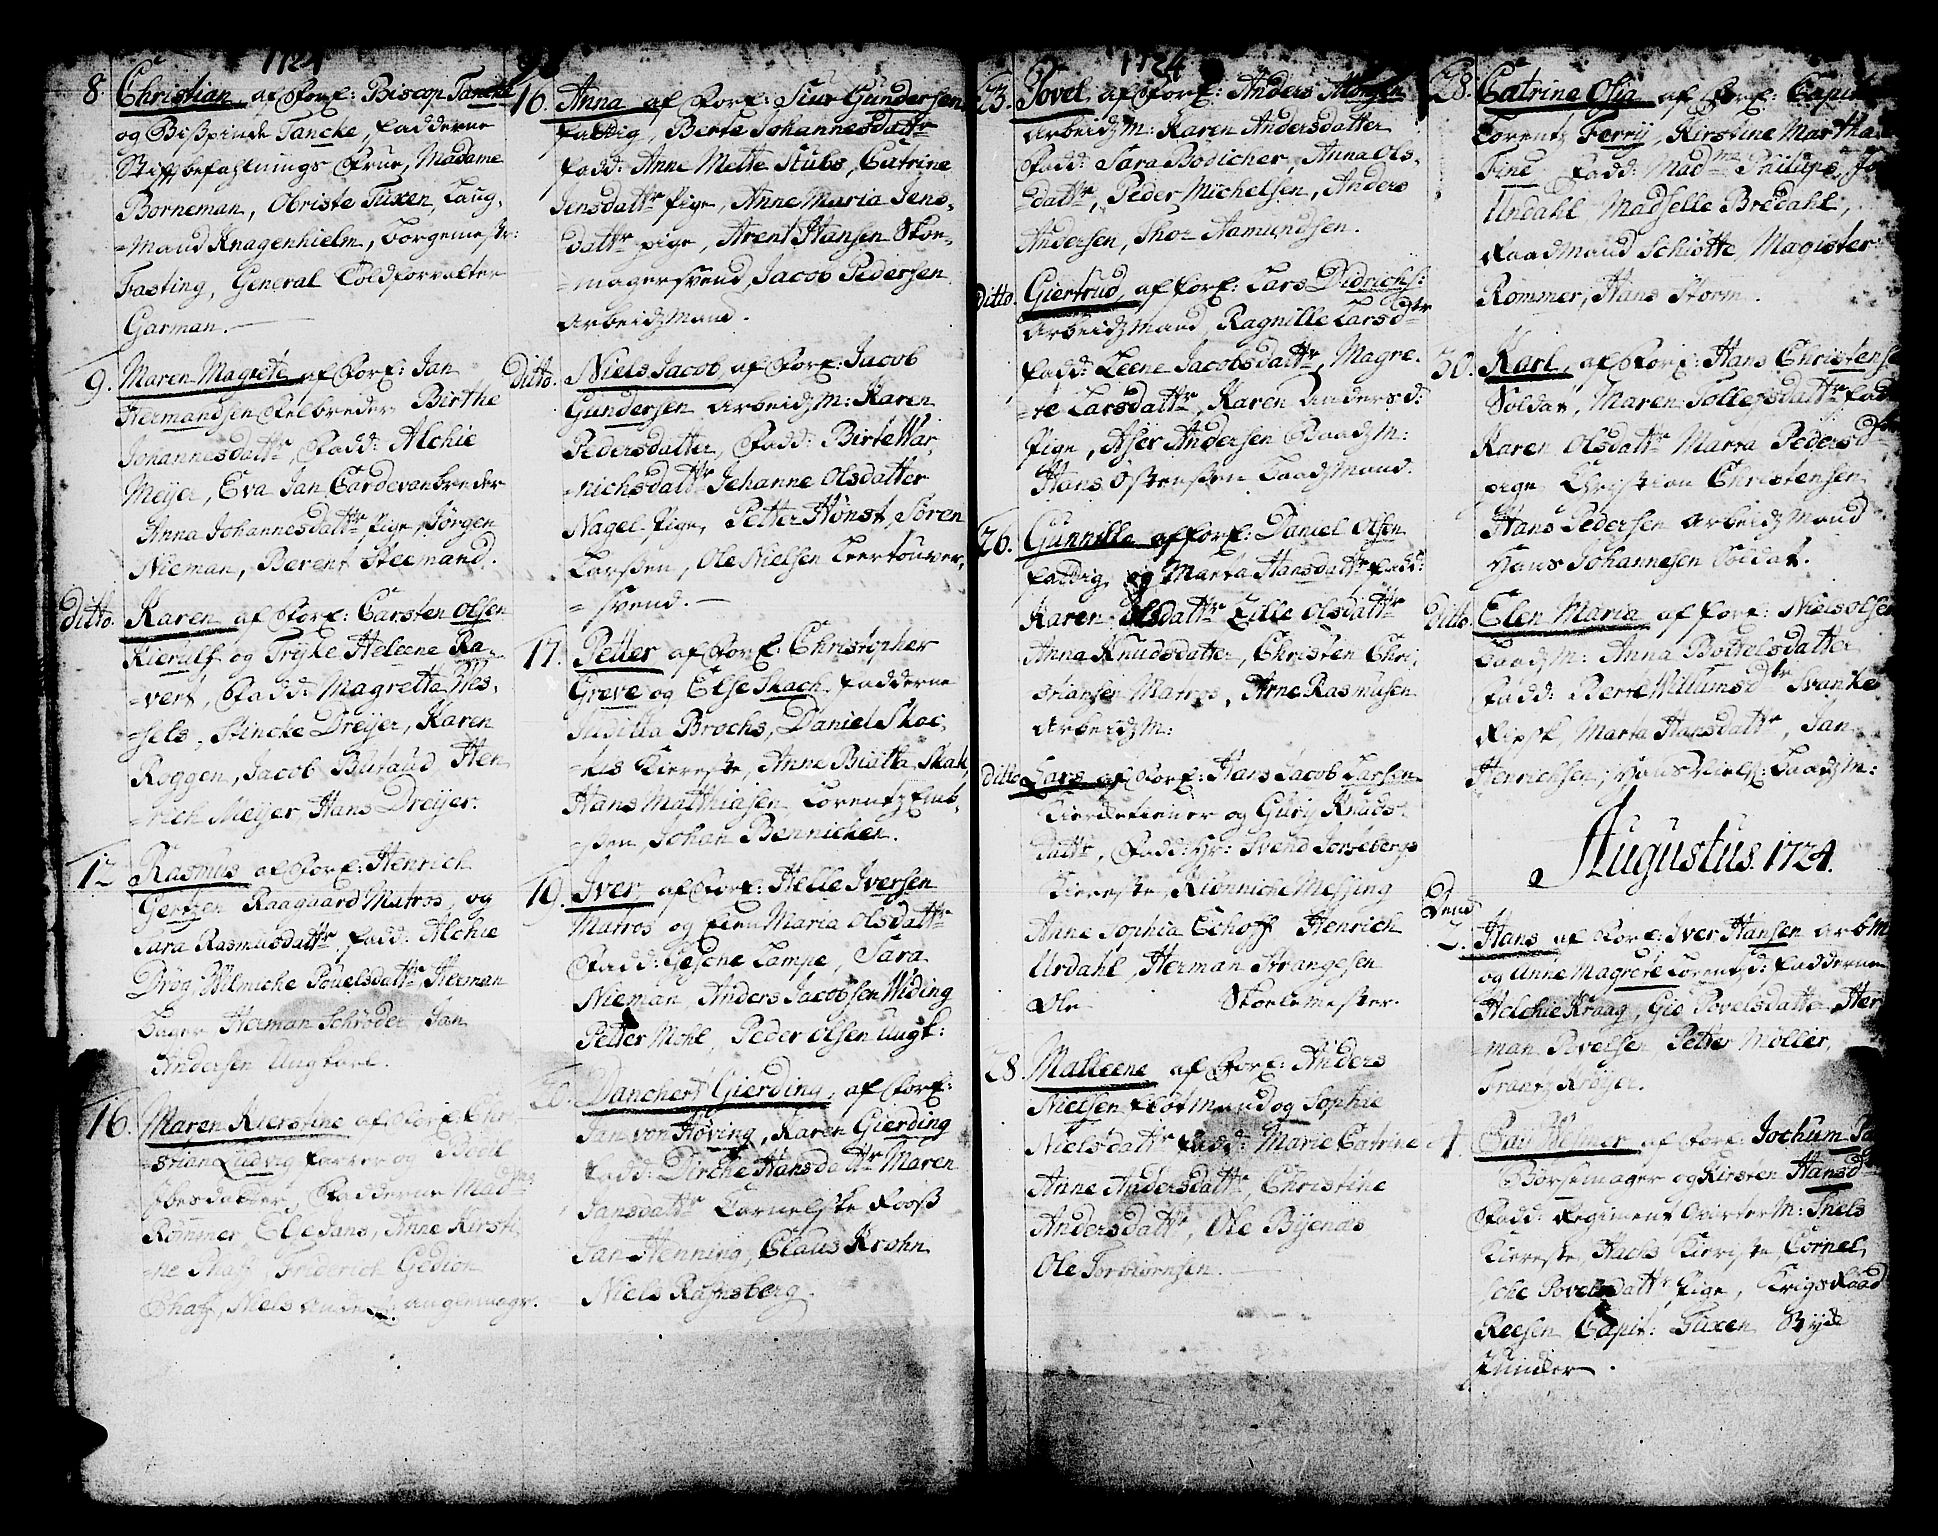 1724
8. Christian af Foræl: Biscop Tancke
og Bispinde Tancke, Fadderne
Stiftbefahlnings Frue, Madame
Borneman, Obriste Tuxen, Laug-
=mand Knagenhielm, Borgemestr:
Fasting, General Toldforvalter
Garman.
9. Maren Magrete af Foræl: Jan
Hermandsen Felbreder Birthe
Johannesdattr, Fadd: Alchie
Meijer, Eva Jan Cardevanbreder
Anna Johannesdattr Pige, Jørgen
Nieman, Berent Steemand.
ditto. Karen af Foræl: Carsten Olsen
Kierulf og Tryke Heleene Ra-
=vert, Fadd: Magretta Wes-
=sels, Stincke Dreijer, Karen
Roggen, Jacob Butaud Hen
=rich Meijer, Hans Dreijer.
12 Rasmus af Foræl: Henrich
Gertzen Raagaard Matros, og
Sara Rasmusdattr, Fadd: Alchie
Drög, Wilmiche Pouelsdattr, Herman
Herman Schröder, Jan
Andersen Ungkarl.
16. Maren Kierstine af Foræl: Chri
=stian Ludvig og Bodil
Fadderne Madme
Rommer, Else Jans, Anne Kirsti-
=ne Friderich Gedion
Niels
16. Anna af Foræl: Siur Gundersen
Fattig, Berte Johannesdattr
Fadd: Anne Mette Stubs, Catrine
Jensdattr Pige, Anne Maria Jens-
dattr pige, Arent Hansen Skoe-
=magersvend, Jacob Pedersen
Arbeidzmand.
ditto. Niels Jacob af Foræl: Jacob
Gundersen Arbeidzm: Karen
Pedersdatter, Fadd: Birte War-
=nichsdattr Johanne Olsdatter
Nagel Pige, Petter Hønst, Søren
Larssen, Ole Nielsen
=svend.
17. Petter af Foræl: Christopher
Greve og Else Skach Fadderne
Juditta Brochs, Daniel Skac-
=kes Kiereste, Anne Biatta Skak,
Hans Matthiasen Lorentz Emb-
=sen Johan Bennichen.
19. Iver af Foræl: Helle Iversen
Matros og Elen Maria Olsdattr
Fadd: Gesche Lampe, Sara
Nieman, Anders Jacobsen Widing
Petter Mohl, Peder Olsen Ungk:
20. Danchert Gierding, af Foræl:
Jan von Høving, Karen Gierding
Fadd: Dirche Hansdattr Maren
Jansdattr Cornelske Rooss
Jan Henning, Claus Krohn
Niels Ravnsberg.
1724
23. Povel af Foræl: Anders Monsen
Arbeidzm: Karen Andersdatter
Fadd: Sara Bødicher, Anna Ols-
=dattr, Peder Michelsen, Anders
Andersen, Thor Aamundsen.
ditto. Giertrud af Foræl: Lars Didrichs:
Arbeidzmand, Ragnille Larsdtr
Fadd: Leene Jacobsdattr, Magre-
=te Larsdattr, Karen Andersd:
Pige, Asser Andersen Baadzm:
Hans Ostensen Baadzmand.
26. Gunnille af Foræl: Daniel Olsen
Fattig og Marta Hansdattr Fadd:
Karen Olsdattr Lille Olsdattr
Anna Knudsdatter, Christen Chri-
stiansen Matros, Arne Rasmusen
Arbeidzm:
ditto Lars af Foræl: Hans Jacob Larsen
Kierdetiener og Guri Knuds-
dattr, Fadd: Hr: Svend Jorsebergs
Kiereste, Rionniche Messing
Anne Sophia Echoff Henrich
Urdahl, Herman Strangesen
Ole Skolemester.
28 Malleene af Foræl: Anders
Nielsen Flötmand og Sophie
Nielsdattr Fadd: Marie Catrine
Anne Andersdattr, Christine
Andersdattr, Ole Bijenas
Ole Torbiornsen.
28. Catrine Olja af Foræl: Capit
Lorentz Ferrij, Kirstine Martha
Fine Fadd: Madme Philips,
Undahl Madselle Bredahl,
Raadmand Schiøtte, Magister
Rommer, Hans Storm.
30. Karl af Foræl: Hans Christense
Soldat, Maren Tollefsdattr Fad
Karen Olsdattr Marta Pedersd
pige Christian Christensen
Hans Pedersen Arbeidzmand
Hans Johannesen Soldat.
ditto. Elen Maria af Foræl: Niels Olsen
Baadzm: Anna Bottelsdatter
Fadd: Berte Willumsdtr Svanke
Ripsk, Marta Hansdattr, Jan
Henrichsen, Hans Niels: Baadzm:
Augustus 1724.
2. Hans af Foræl: Iver Hansen arbm
og Anne Magrete Lorentzd: Fadderne
Helchie Kraag, Gio Povelsdatter Her
=man Povelsen, Petter Møller,
Frantz Krøijer.
4. Jochum
Børsemager og Kirsten Hansdtr
Fadd: Regiment Qvarterm: Thels
Kiereste, Hachs Kiereste Cornel-
sche Povelsdattr Pige, Krigs Raad
Reesen Capit: Tuxen